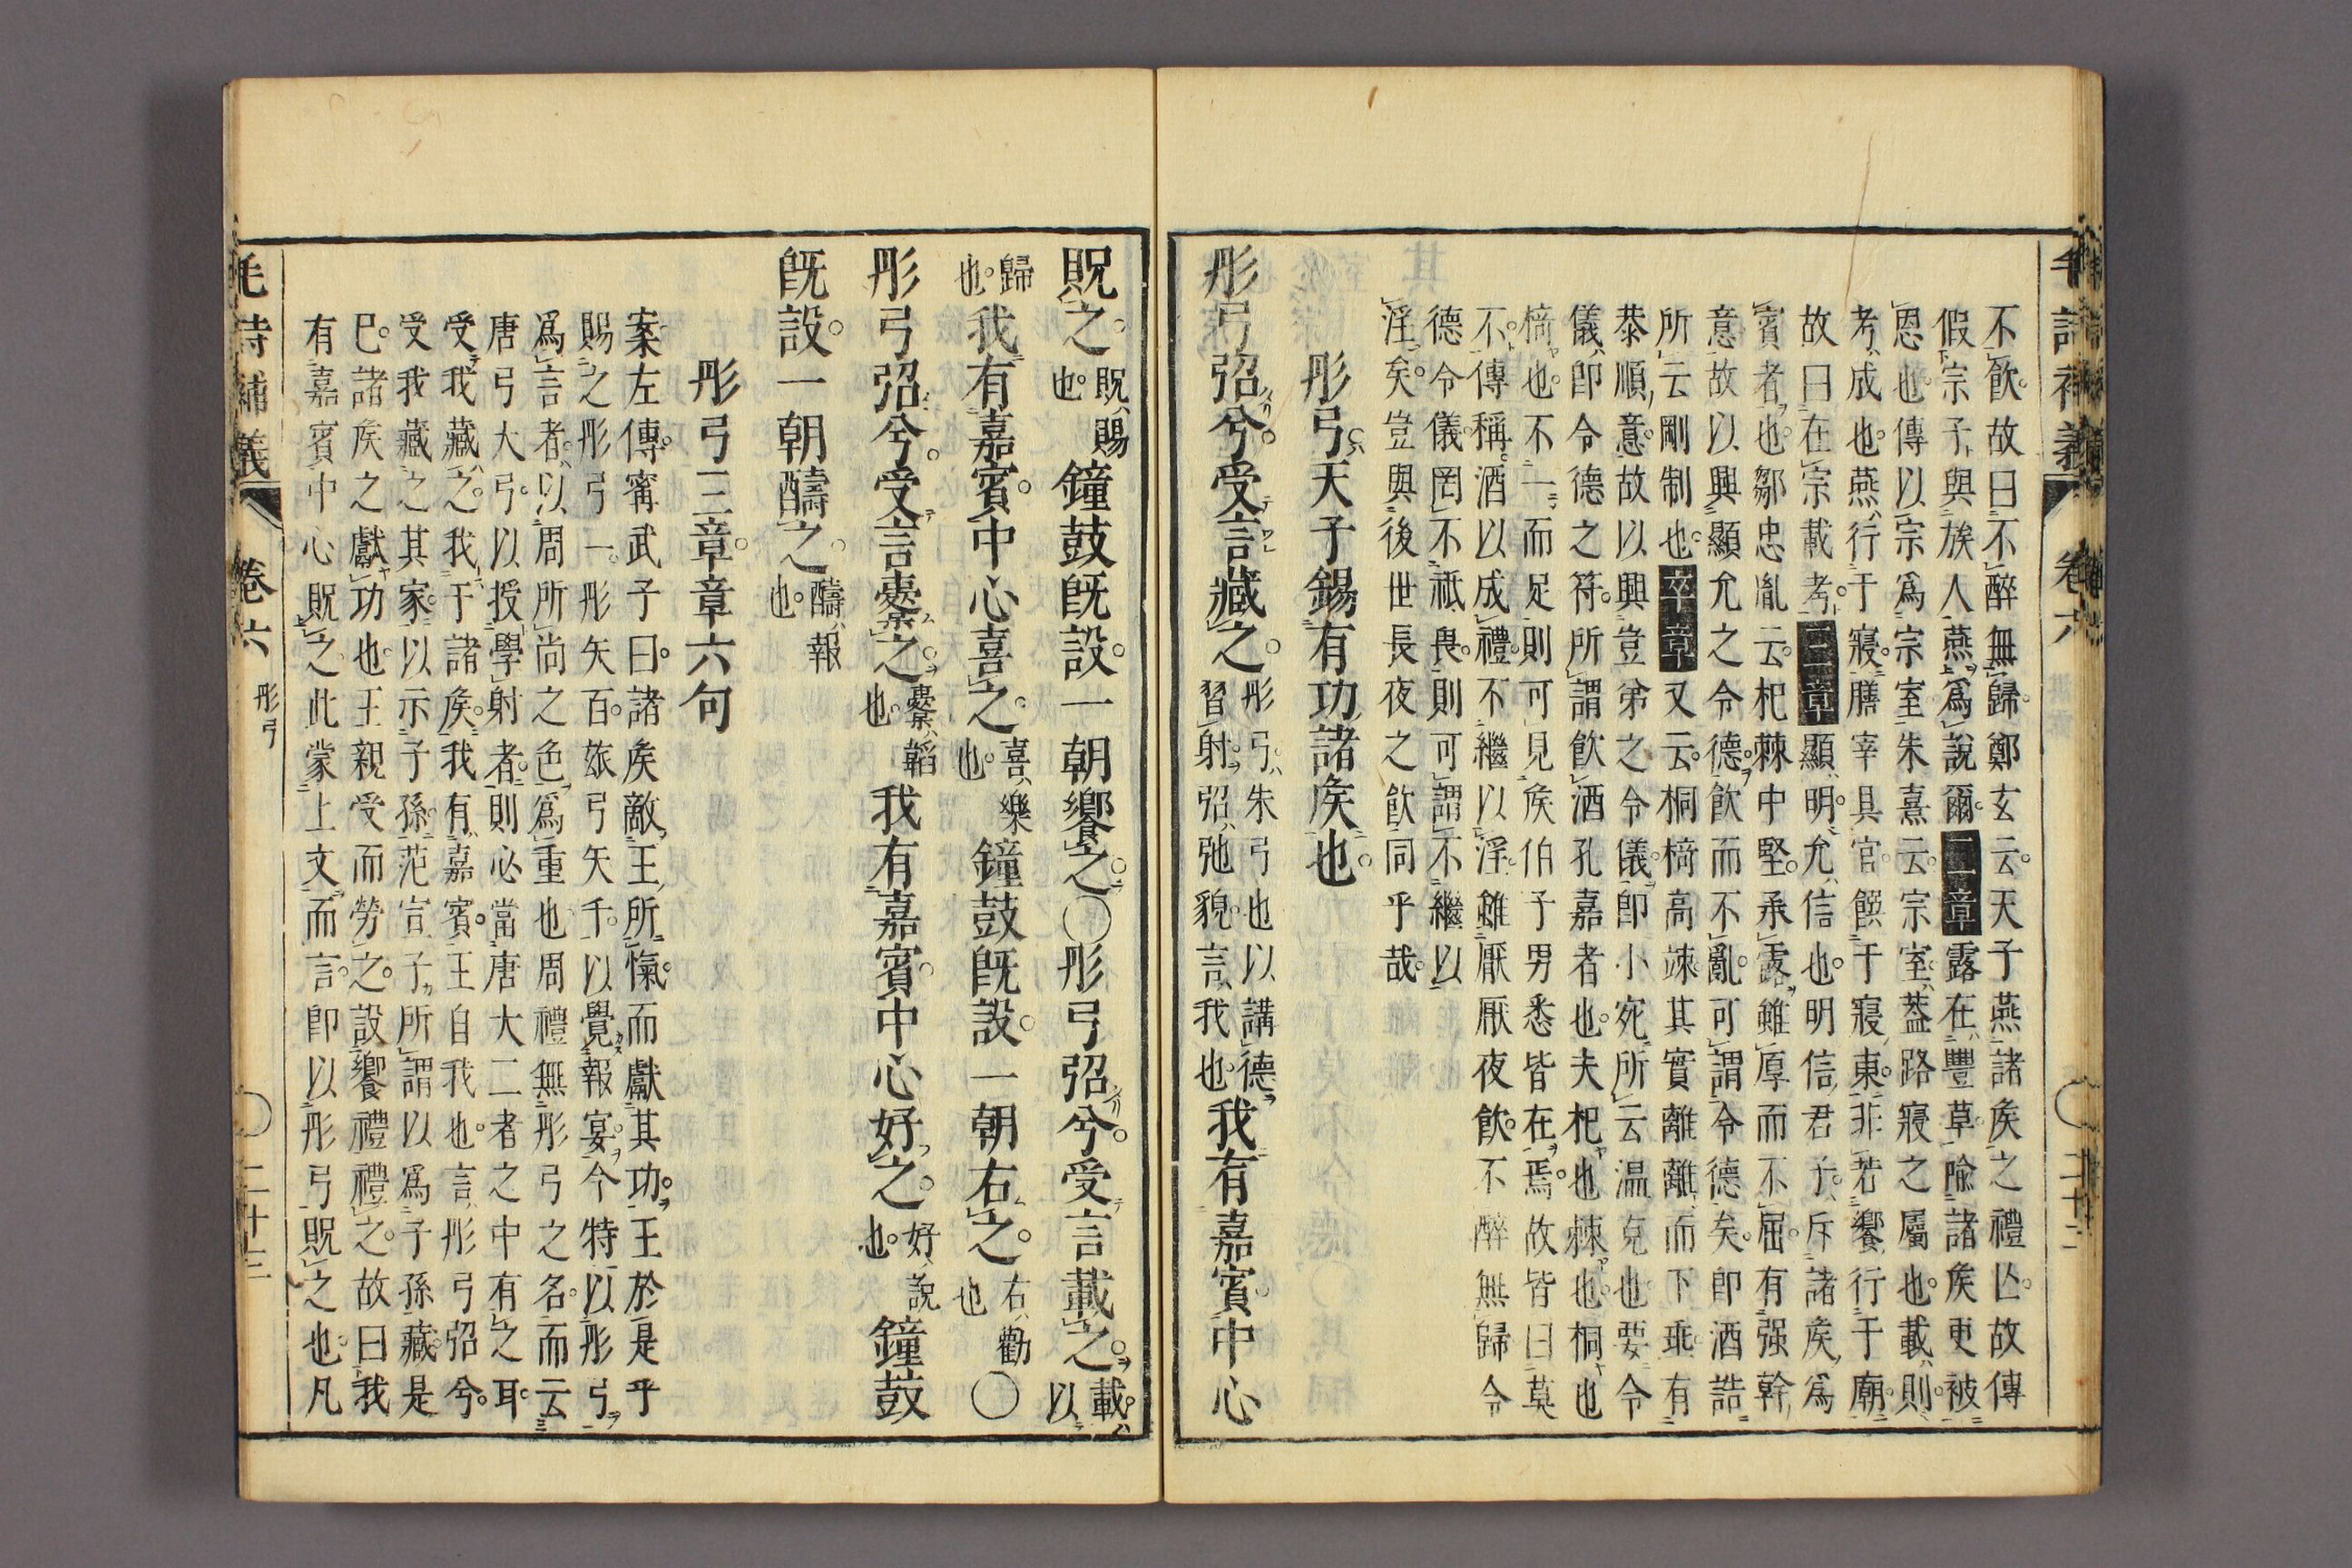 毛詩補義 卷六 二十二
不飮故曰不醉無歸鄭玄云天子燕諸矦之禮亾故傳
假宗子與族人燕爲說爾二章露在豐草喩諸矦更被
恩也傳以宗爲宗室朱熹云宗室蓋路寢之屬也載則
考成也燕行于寢膳宰具官饌于寢東非若饗行于廟
故曰在宗載考三章顯明允信也明信君子斥諸矦爲
賓者也鄒忠胤云杞棘中堅承露雖厚而不屈有强幹
意故以興顯允之令德飮而不亂可謂令德矣卽酒誥
所云剛制也卒章又云桐椅高竦其實離離而下乖有
恭順意故以興豈弟之令儀卽小宛所云温克也要令
儀卽令德之符所謂飮酒孔嘉者也夫杞也棘也桐也
椅也不一而足則可見矦伯子男悉皆在焉故皆曰莫
不傳稱酒以成禮不繼以淫雖厭厭夜飮不醉無歸令
德令儀罔不祗畏則可謂不繼以
淫矣豈與後世長夜之飮同乎哉
彤弓天子錫有功諸矦也
彤弓弨兮受言藏之彤弓朱弓也以講德習射弨弛貌言我也我有嘉賓中心
貺之貺賜也鐘鼓旣設一朝饗之○彤弓弨兮受言載之載以
歸也我有嘉賓中心喜之喜樂也鐘鼓旣設一朝右之右勸也○
彤弓弨兮受言櫜之櫜韜也我有嘉賓中心好之好說也鐘鼓
旣設一朝醻之醻報也
彤弓三章章六句
案左傳甯武子曰諸矦敵王所愾而獻其功王於是乎
賜之彤弓一彤矢百玈弓矢千以覺報宴今特以彤弓
爲言者以周所尚之色爲重也周禮無彤弓之名而云
唐弓大弓以授學射者則必當唐大二者之中有之耳
受我藏之我于諸矦我有嘉賓王自我也言彤弓弨兮
受我藏之其家以示子孫范宣子所謂以爲子孫藏是
巳諸矦之獻功也王親受而勞之設饗禮禮之故曰我
有嘉賓中心貺之此蒙上文而言卽以彤弓貺之也凡
毛詩補義 卷六 彤弓 二十三